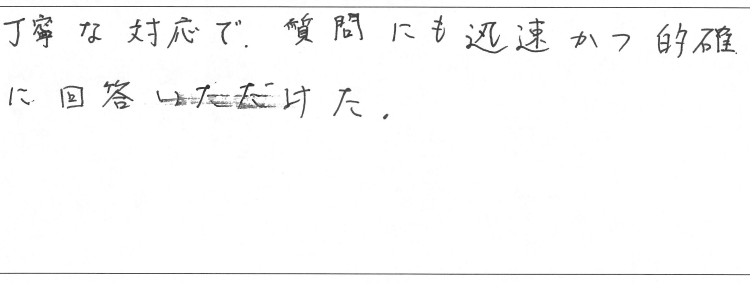 丁寧な対応で、質問にも迅速かつ的確
に回答いただけた。